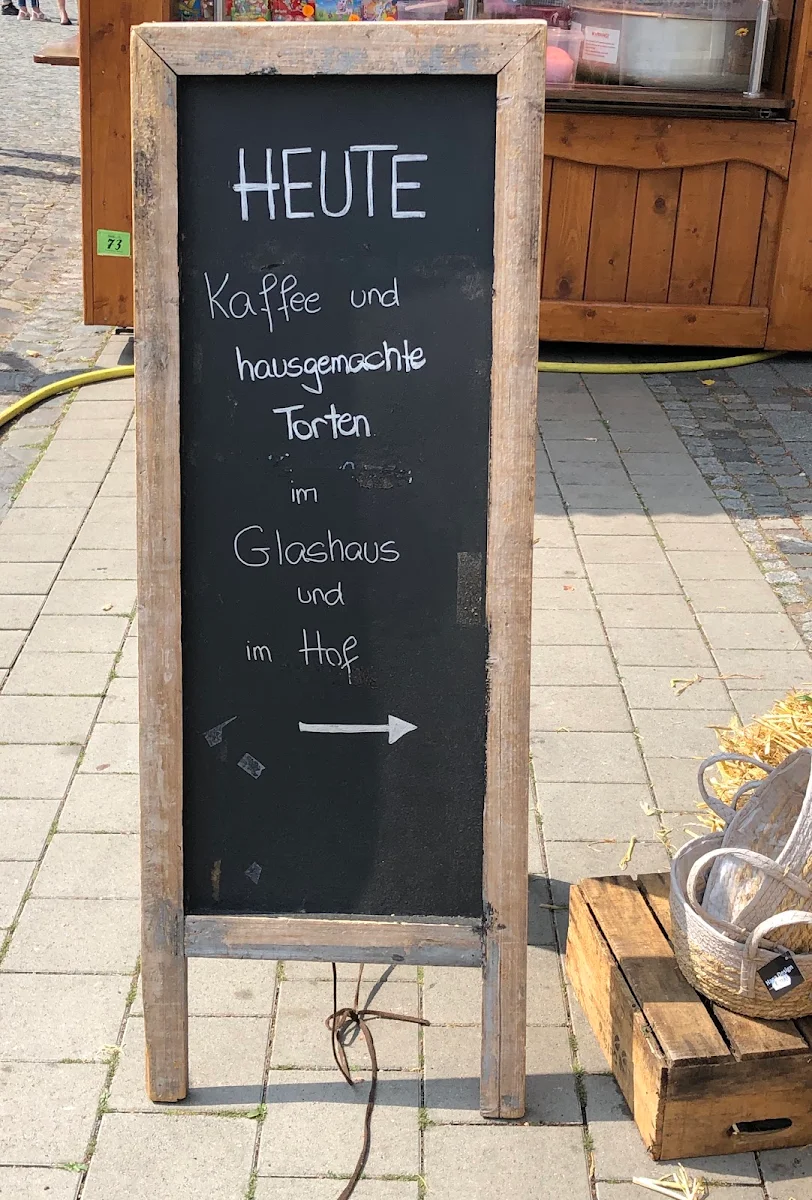 HEUTE
Kaffee und
hausgemachte
Torten
im
Glashaus
und
im Hof
73